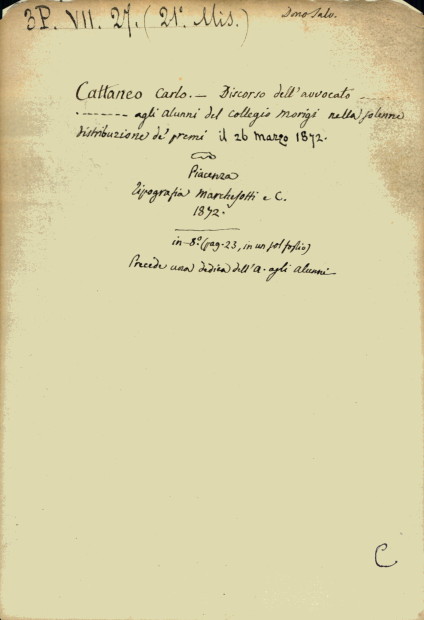 3P. VII. 27. (21ª. Mis.)
Dono Salv.
Cattaneo Carlo. — Discorso dell'avvocato -----
------- agli alunni del collegio Morigi nella solenne
distribuzione de' premi il 26 marzo 1872.
Piacenza
Tipografia Marchesotti e C.
1872.
in-8º. (pag. 23, in un sol foglio)
Precede una dedica dell'A. agli Alunni
C